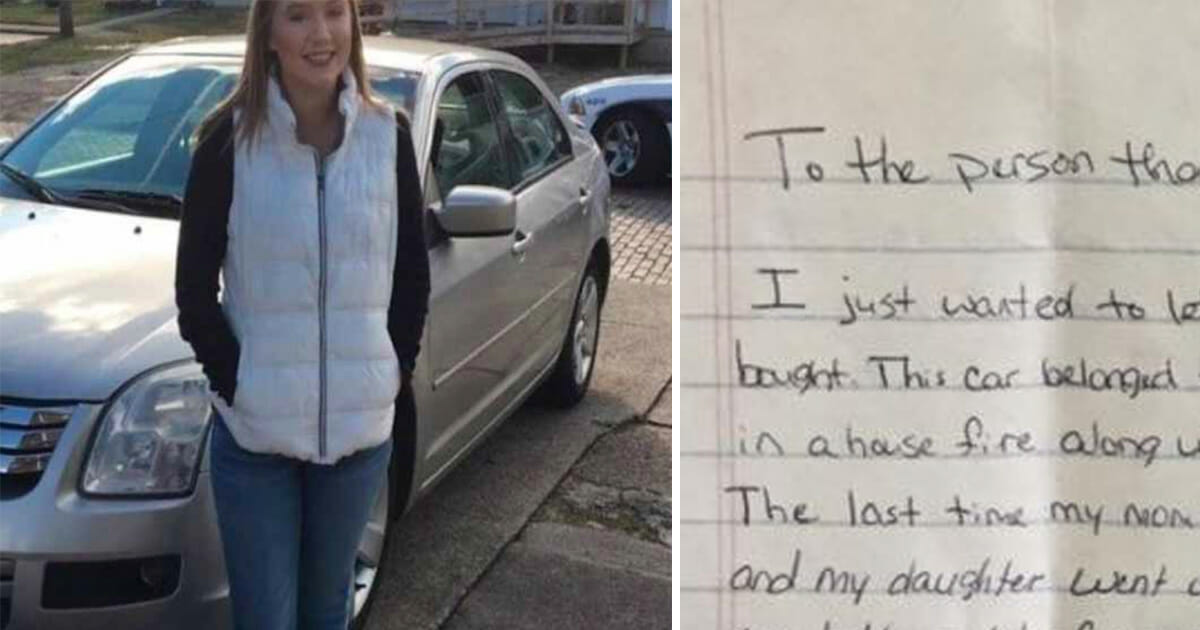 To the person tha
I just wanted to le
bought. This car belonged
in a house fire along w
The last time my mom
and my daughter went